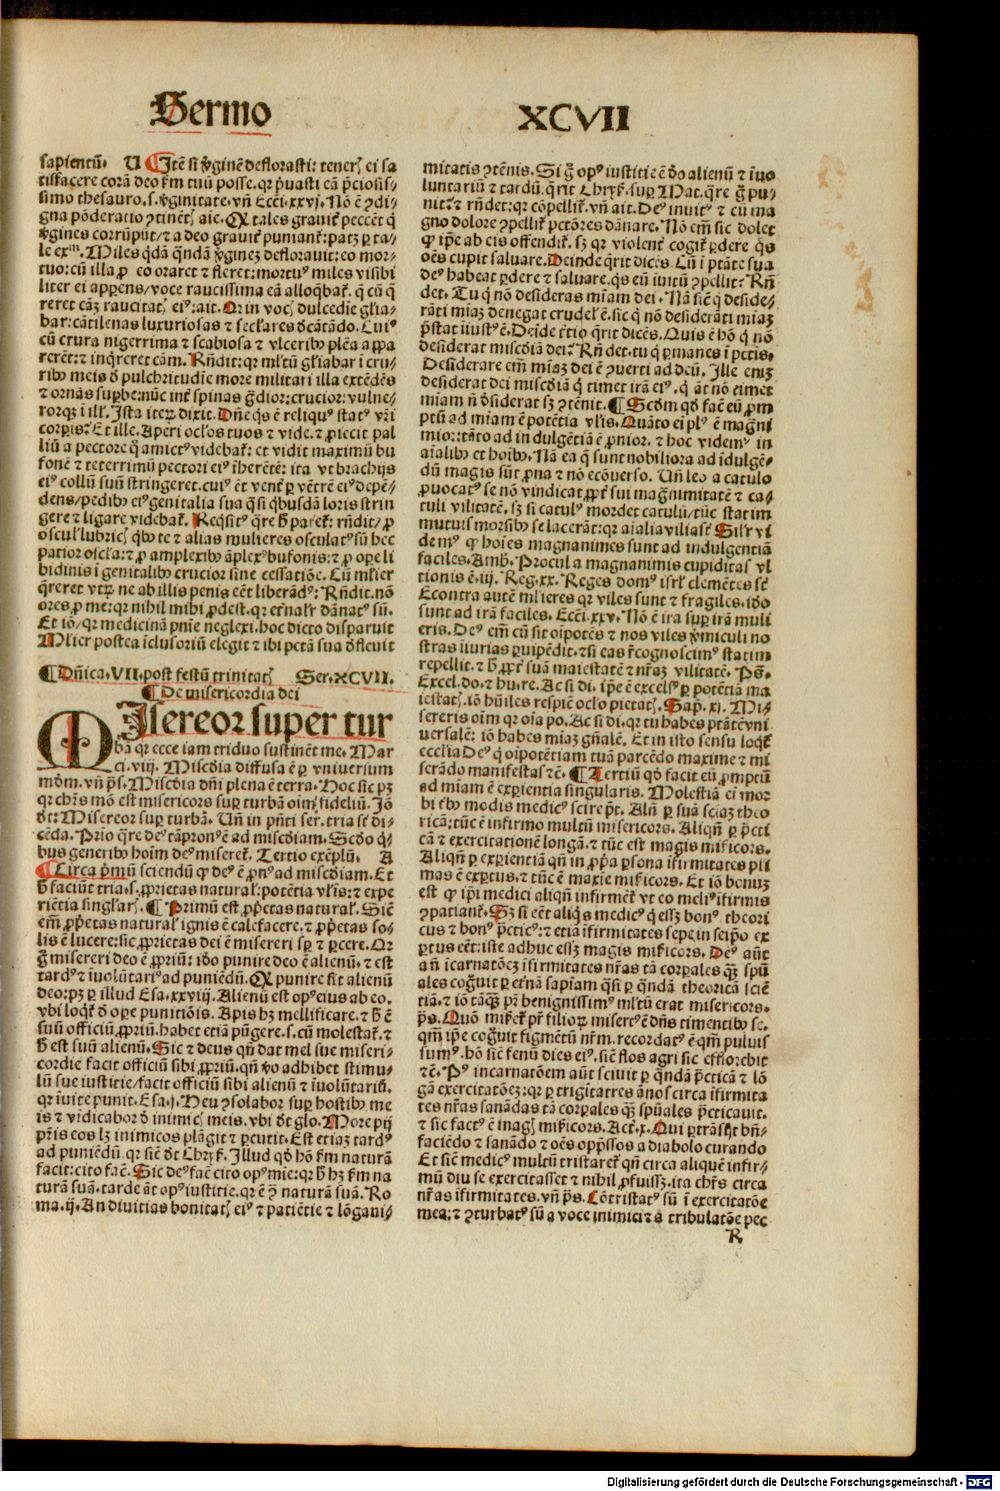 Sermo XCVII
sapientū. U ¶Itē si v̄ginē deflorasti: teneri⁊ ei sa
tisfacere corā deo ẜm tuū posse. qr p̄uasti eā p̄ciosis⸗
simo thesauro. s. v̄ginitate. vn̄ Ecc̄i. xxvj. Nō ē ꝯdi⸗
gna pōderatio ꝯtinēt⁊ aīe. Q tales grauit̄ peccēt q̄
v̄gines corrūpūt / ⁊ a deo grauit̄ puniant̄: patꝫ ꝑ ta⸗
le exᵐ. Miles q̄dā q̄ndā v̄ginez deflorauit: eo mor⸗
tuo: cū illa ꝓ eo oraret ⁊ fleret: mortuꝰ miles visibi
liter ei apꝑens / voce raucissima eā alloq̄bat̄. q̄ cū q̄
reret cāz raucitat⁊ eiꝰ: ait. Qr in voc⁊ dulcedīe gl̄ia⸗
bar: cātilenas luxuriosas ⁊ secl̄ares d̄cātādo. Cuiꝰ
cū crura nigerrima ⁊ scabiosa ⁊ vlceribꝰ plēa appa
rerēt: ⁊ inq̄reret cām. Rn̄dit: qr ml̄tū gl̄iabar ī cru⸗
ribꝰ meis d̄ pulchritudīe more militari illa extēdēs
⁊ ornās suꝑbe: nūc int̄ spinas g̃dior: crucior: vulne⸗
rorqꝫ i ill̓. Ista iteꝝ dixit. Dn̄e q̄s ē reliquꝰ statꝰ vr̄i
corꝑis? Et ille. Aperi ocl̓os tuos ⁊ vide. ⁊ ꝓiecit pal
liū a pectore q̄ amictꝰ videbat̄: et vidit maximū bu
fonē ⁊ teterrimū pectori eiꝰ īherētē: ita vt brachijs
eiꝰ collū suū stringeret. cuiꝰ ēt vent̄ ꝑ vētrē eiꝰ depē⸗
dens / pedibꝰ eiꝰ genitalia sua q̄si q̄busdā loris strin
gere ⁊ ligare videbat̄. Reqsitꝰ q̄re h̄ paret̄: rn̄dit / ꝓ
oscul̓ lubric⁊ qbꝰ te ⁊ alias mulieres osculatꝰ sū hec
patior oscl̓a: ⁊ ꝓ amplexibꝰ āplexꝰ bufonis: ⁊ ꝓ oꝑe li
bidinis ī genitalibꝰ crucior sine cessatiōe. Cū ml̓ier
q̄reret vtꝝ ne ab illis penis eēt liberādꝰ: Rn̄dit. nō
ores ꝓ me: qr nihil mihi ꝓdest. qr et̓nal̓r dānatꝰ sū.
Et iō / qr medicinā pn̄ie neglexi. hoc dicto disparuit
Ml̓ier postea īclusoriū elegit ⁊ ibi pctā sua d̄fleuit
¶ Dn̄ica. VII. post festū trinitat⁊ Ser. XCVII.
¶ De misericordia dei
MIsereor super tur
bā qr ecce iam triduo sustinēt me. Mar
ci. viij. Misc̄dia diffusa ē ꝑ vniuersum
mōm. vn̄ ps̄. Misc̄dia dn̄i plena ē terra. Hoc sic pꝫ
qr chr̄s mō est misericors suꝑ turbā oīm fideliū. Iō
d̄t: Misereor suꝑ turbā. Un̄ in pn̄ti ser. tria st̄ di⸗
cēda. Prīo q̄re deꝰ tā ꝓnꝰ ē ad misc̄diam. Scd̄o q⸗
bus generibꝰ hoīm deꝰ miseret̄. Tertio exēplū. A
¶ Circa p̄mū sciendū ꝙ deꝰ ē ꝓnꝰ ad misc̄diam. Et
h̄ faciūt tria. s. ꝓprietas natural̓: potētia vl̄is: ⁊ expe
riētia singl̓ar⁊. ¶ Primū est ꝓp̄etas natural̓. Sic̄
em̄ ꝓp̄etas natural̓ ignis ē calefacere. ⁊ ꝓp̄etas so⸗
lis ē lucere: sic ꝓprietas dei ē misereri sꝑ ⁊ ꝑcere. Qr
g̊ misereri deo ē ꝓpriū: iō punire deo ē alienū. ⁊ est
tardꝰ ⁊ īuolūtariꝰ ad puniēdū. Q punire sit alienū
deo: pꝫ ꝑ illud Esa. xxviij. Alienū est opꝰ eius ab eo.
vbi loqt̄ d̄ oꝑe punitiōis. Apis hꝫ mellificare. ⁊ h̄ ē
suū officiū ꝓpriū. habet etiā pūgere. s. cū molestat̄. ⁊
h̄ est suū alienū. Sic ⁊ deus qn̄ dat mel sue miseri⸗
cordie facit officiū sibi ꝓpriū. qn̄ vo adhibet stimu⸗
lū sue iustitie / facit officiū sibi alienū ⁊ īuolūtariū.
qr īuite punit. Esa. j. Heu ꝯsolabor suꝑ hostibꝰ me
is ⁊ vīdicabor d̄ inimic⁊ meis. vbi d̄t glo. More pij
pr̄is eos lꝫ inimicos plāgit ⁊ ꝑcutit. Est etiaꝫ tardꝰ
ad puniēdū. qr sic̄ d̄t Chrys̄. Illud qd̄ hō ẜm naturā
facit: cito fac̄. Sic deꝰ fac̄ cito opꝰ mīe: qr h̄ hꝫ ẜm na
turā suā. tarde āt opꝰ iustitie. qr ē ꝯ naturā suā. Ro
ma. ij. An diuitias bonitat⁊ eiꝰ ⁊ patiētie ⁊ lōgani⸗
mitatis ꝯtēnis. Si g̊ opꝰ iustitie ē d̄o alienū ⁊ īuo
luntariū ⁊ tardū. q̄rit Chrys̄. suꝑ Mat. q̄re g̊ pu⸗
nit? ⁊ rn̄det: qr cōpellit̄. vn̄ ait. Deꝰ inuitꝰ ⁊ cū ma
gno dolore ꝯpellit̄ pctōres dānare. Nō em̄ sic dolet
ꝙ ip̄e ab eis offendit̄. sꝫ qr violent̄ cogit̄ ꝑdere q̄s
oēs cupit saluare. Deinde q̄rit dicēs. Cū ī ptāte sua
deꝰ habeat ꝑdere ⁊ saluare. q̄s eū īuitū ꝯpellit? Rn̄
det. Tu q nō desideras mīam dei. Nā sic̄ q deside⸗
rāti mīaꝫ denegat crudel̓ ē. sic q nō desiderāti mīaꝫ
p̄stat iiustꝰ ē. Deīde t̄tio q̄rit dicēs. Quis ē hō q nō
desiderat misc̄diā dei? Rn̄det. tu q ꝑmanes ī pctīs.
Desiderare em̄ mīaꝫ dei ē ꝯuerti ad deū. Ille enīꝫ
desiderat dei misc̄diā q timet irā eiꝰ. q āt nō timet
mīam nō d̄siderat sꝫ ꝯtēnit. ¶ Scd̄m qd̄ fac̄ eū ꝓm
ptū ad mīam ē potētia vl̄is. Quāto ei plꝰ ē magni
mior: tāto ad indulgētiā ē ꝓnior. ⁊ hoc videmꝰ in
aīalibꝰ et hoībꝰ. Nā ea q̄ sunt nobiliora ad īdulgē⸗
dū magis sūt ꝓna ⁊ nō ecōuerso. Un̄ leo a catulo
ꝓuocatꝰ se nō vindicat ꝓpt̄ sui magn̄imitatē ⁊ ca⸗
tuli vilitatē. sꝫ si catulꝰ mordet catulū / tūc statim
mutuis morsibꝰ se lacerāt: qr aīalia vilia st̄. Sil̓r vi
demꝰ ꝙ hoīes magnanimes sunt ad indulgentiā
faciles. Amb̄. Procul a magnanimis cupiditas vl
tionis ē. iij. Reg. xx. Reges domꝰ isrl̓ clemētes st̄
Econtra autē ml̓ieres qr viles sunt ⁊ fragiles. iō
sunt ad irā faciles. Ecc̄i. xxv. Nō ē ira suꝑ irā muli
eris. Deꝰ em̄ cū sit oīpotēs ⁊ nos viles v̄miculi no
stras īiurias vuipēdit. ⁊ si eas r̄cognoscimꝰ statim
repellit. ⁊ h̄ ꝓpt̄ suā maiestatē ⁊ nr̄aꝫ vilitatē. Ps̄.
Excel. do. ⁊ hu. re. Ac si di. ip̄e ē excelsꝰ ꝑ potētiā ma
iestat⁊. iō hūiles respic̄ ocl̓o pietat⁊. Sap. xj. Mi⸗
sereris oīm qr oīa po. Ac si di. qr tu habes ptātē vni
uersalē: iō habes mīaꝫ gn̄alē. Et in isto sensu loqt̄
eccl̄ia Deꝰ q oīpotētiam tuā parcēdo maxime ⁊ mi
serādo manifestas ⁊c̄. ¶ Tertiū qd̄ facit eū ꝓmptū
ad mīam ē exꝑientia singularis. Molestiā ei mor
bi trībꝰ modis medicꝰ scire pt̄. Aln̄ ꝑ suā sciaꝫ theo
ricā: tūc ē infirmo multū misericors. Aliqn̄ ꝑ p̄cti
cā ⁊ exercitationē longā. ⁊ tūc est magis mīsicors.
Aliqn̄ ꝑ exꝑientiā qn̄ in ꝓp̄a ꝑsona īfirmitates pli
mas ē exꝑtus. ⁊ tūc ē maxīe mīsicors. Et iō bonuꝫ
est ꝙ ip̄i medici aliqn̄ infirment̄ vt eo meliꝰ īfirmis
ꝯpatiant̄. Sꝫ si eēt aliqs medicꝰ q eēꝫ bonꝰ theori
cus ⁊ bonꝰ p̄cticꝰ: ⁊ etiā īfirmitates sepe in seipo ex
ꝑtus eēt: iste adhuc essꝫ magis mīsicors. Deꝰ aūt
an̄ īcarnatōeꝫ īfirmitates nr̄as tā corꝑales q̄ꝫ spūa
ales cogn̄uit ꝑ et̓nā sapiam q̄si ꝑ q̄ndā theoricā sciē
tiā. ⁊ iō tāq̄ꝫ pr̄ benignissimꝰ ml̓tū erat misericors.
ps̄. Quō miseret̄ pr̄ filioꝝ misertꝰ ē dn̄s timentibꝰ se.
qm̄ ip̄e cogn̄uit figmētū nr̄m. recordatꝰ ē qm̄ puluis
sumꝰ. hō sic̄ fenū dies eiꝰ. sic̄ flos agri sic efflorebit
⁊c̄. Pꝰ incarnatōem aūt sciuit ꝑ q̄ndā p̄cticā ⁊ lō
gā exercitatōeꝫ: qr ꝑ trigītatres ānos circa īfirmita
tes nr̄as sanādas tā corꝑales q̄ꝫ spūales p̄cticauit.
⁊ sic factꝰ ē inag⁊ mīsicors. Act̄. x. Qui ꝑtrāsijt bn̄⸗
faciēdo ⁊ sanādo ⁊ oēs opp̄ssos a diabolo curando
Et sic̄ medicꝰ multū tristaret̄ qn̄ circa aliquē infir⸗
mū diu se exercitasset ⁊ nihil ꝓfuissꝫ. ita chr̄s circa
nr̄as īfirmitates. vn̄ ps̄. Cōtristatꝰ sū ī exercitatōe
mea: ⁊ ꝯturbatꝰ sū a voce inimici ⁊ a tribulatōe pec
R
Digitalisierung gefördert durch die Deutsche Forschungsgemeinschaft - DFG